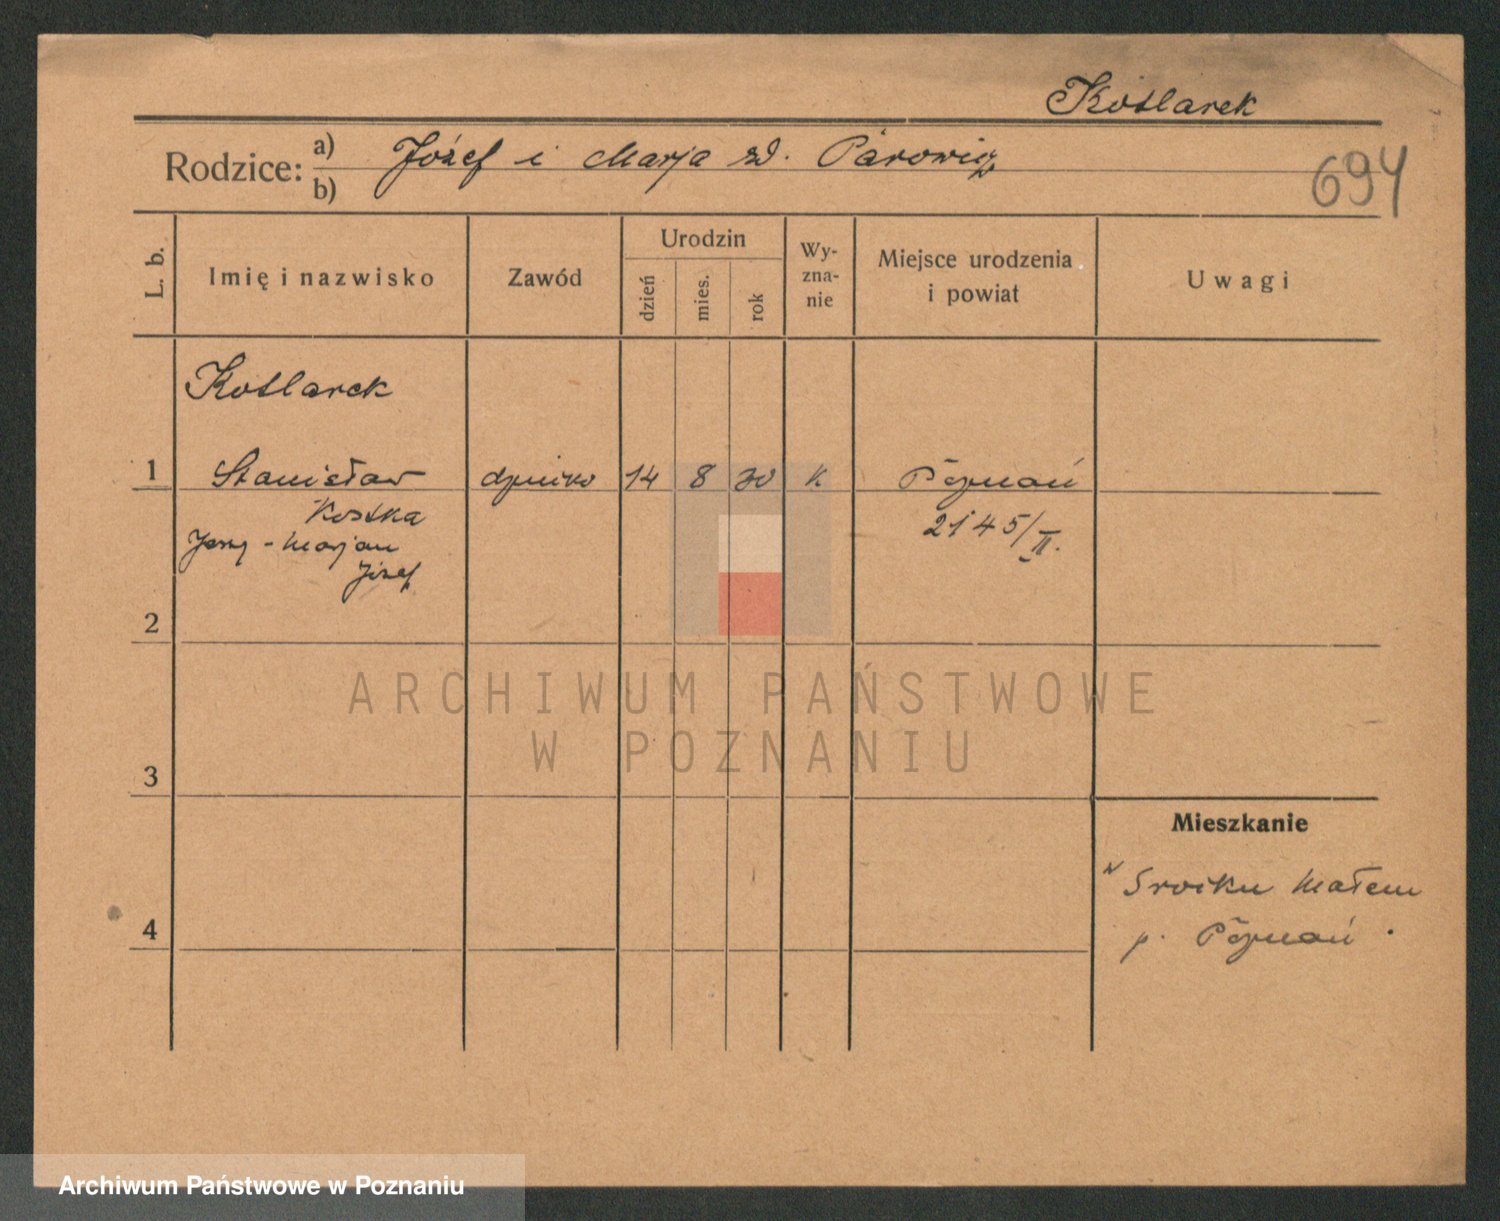 Kotlarek
Rodzice: a) Józef i Marja zd. Parowicz
b)
694
L. b.
Imię i nazwisko
Zawód
Urodzin
dzień
mies.
rok
Wy-
zna-
nie
Miejsce urodzenia
i powiat
Uwagi
Kotlarek
1 Stanisław dziecko 14 8 30 k Poznań
Kostka 2145/II.
Jerzy - Marjan
Józef
2
ARCHIWUM PAŃSTWOWE
W POZNANIU
3
Mieszkanie
w Małem
4
p. Poznań
Archiwum Państwowe w Poznaniu